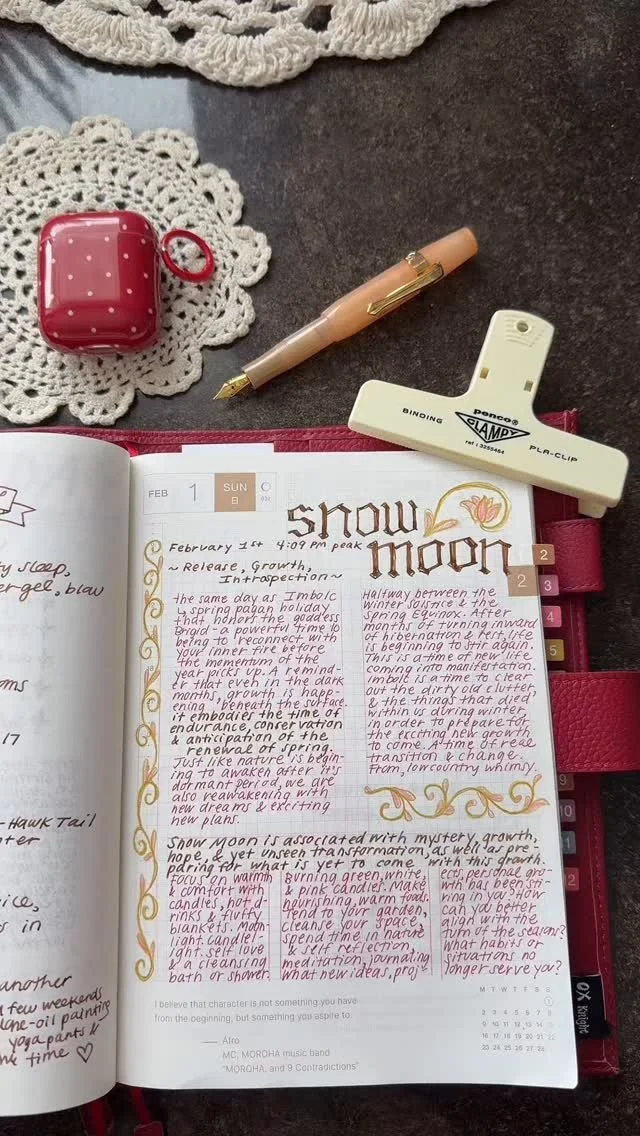 y sleep,
er gel, blau
oms
17
-Hawk Tail
ter
ice,
s in
another
a few weekends
yoga pants &
me time ♡
BINDING
penco®
CLAMPY
ref : 3255464
PLA-CLIP
FEB
1
SUN
B
snow
moon
February 1st 4:09 PM peak
~ Release, Growth,
Introspection ~
2
2
3
4
5
9
10
11
12
the same day as Imbolc
↳ spring pagan holiday
that honors the goddess
Brigid - a powerful time to
being to reconnect with
your inner fire before
the momentum of the
year picks up. A remind-
er that even in the dark
months, growth is happ-
ening beneath the surface.
it embodies the time of
endurance, conservation
& anticipation of the
renewal of spring.
Just like nature is begin-
ing to awaken after it's
dormant period, we are
also reawakening with
new dreams & exciting
new plans.
Halfway between the
winter Solsnice & the
Spring Equinox. After
months of turning inward
of hibernation & rest, life
is beginning to stir again.
This is a time of new life
coming into manifestation.
imbolt is a time to clear
out the dirty old clutter,
& the things that died
within us during winter
in order to prepare for
the exciting new growth
to come. A time of real
transition & change.
From, lowcountry whimsy.
Snow Moon is associated with mystery, growth,
hope, & yet unseen transformation, as well as pre-
paring for what is yet to come with this growth.
Focus on warmth
& comfort with
candles, hot d-
rinks & fluffy
blankets. Moon-
light. Candle l-
ight. self love
& a cleansing
bath or shower
Burning green, white,
& pink candles. Make
nourishing, warm foods.
Tend to your garden,
cleanse your space,
spend time in nature
& self reflection,
meditation, journaling
what new ideas, proj-
ects, personal gro-
wth has been sti-
ring in you? How
can you better
align with the
turn of the seasons?
what habits or
situations no
longer serve you?
I believe that character is not something you have
from the beginning, but something you aspire to.
— Afro
MC, MOROHA music band
"MOROHA, and 9 Contradictions"
M T W T F S S
1
2 3 4 5 6 7 8
9 10 11 12 13 14 15
16 17 18 19 20 21 22
23 24 25 26 27 28
OX Knight